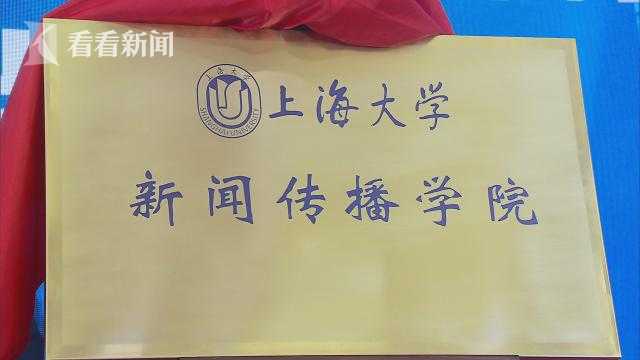 看看新闻
上海大学
SHANGHAI UNIVERSITY
上海大学
新闻传播学院